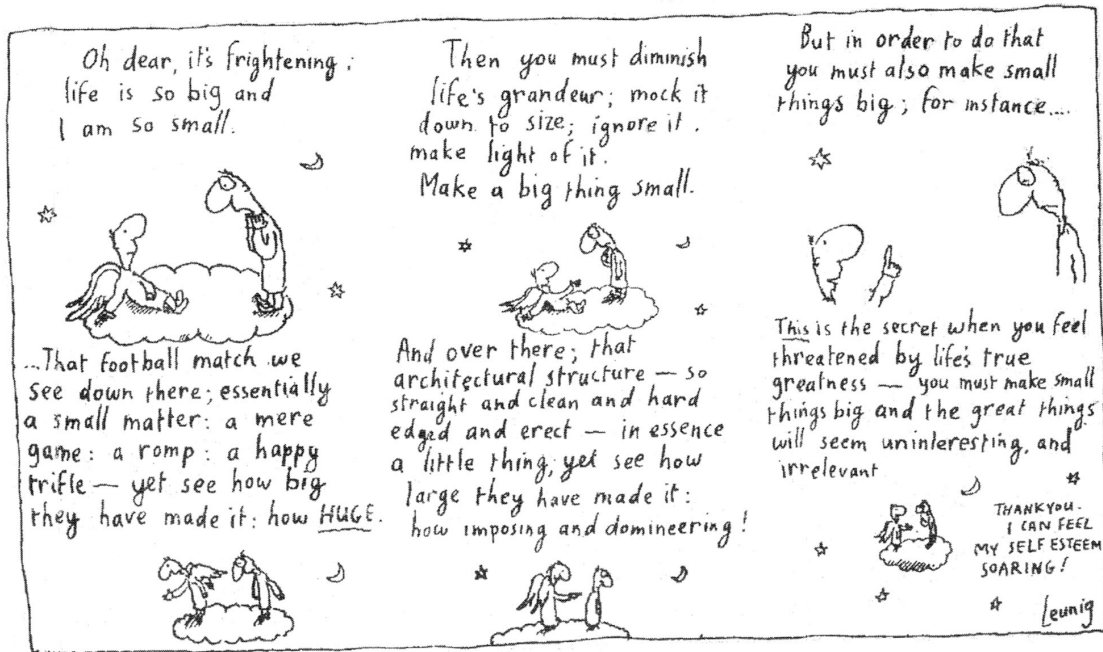 Oh dear, it's frightening;
life is so big and
I am so small.
Then you must diminish
life's grandeur; mock it
down to size; ignore it.
make light of it.
Make a big thing small.
But in order to do that
you must also make small
things big; for instance....
...That football match we
see down there; essentially
a small matter: a mere
game: a romp: a happy
trifle — yet see how big
they have made it: how HUGE.
And over there; that
architectural structure — so
straight and clean and hard
edged and erect — in essence
a little thing, yet see how
large they have made it:
how imposing and domineering!
This is the secret when you feel
threatened by life's true
greatness — you must make small
things big and the great things
will seem uninteresting, and
irrelevant
THANKYOU.
I CAN FEEL
MY SELF ESTEEM
SOARING!
Leunig